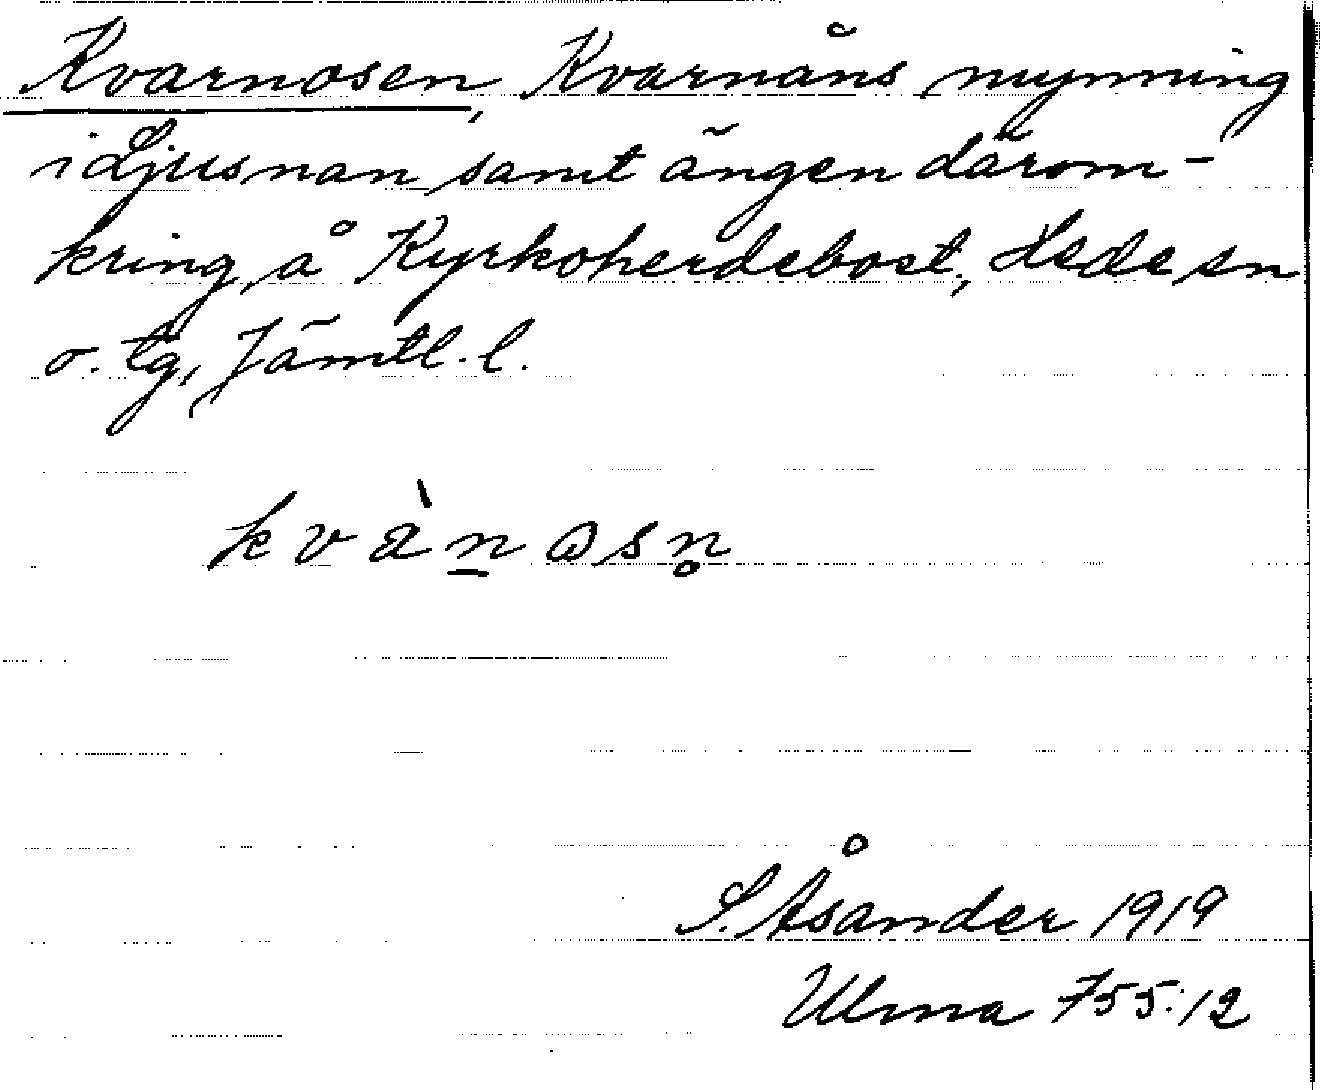 Kvarnosen, Kvarnåns mynning
i Ljusnan samt ängen därom-
kring, å Kyrkoherdebost., Hede sn
o. tg, Jämtl. l.
kvàn̲ɷsn̥
S. Åsander 1919
Ulma 755:12